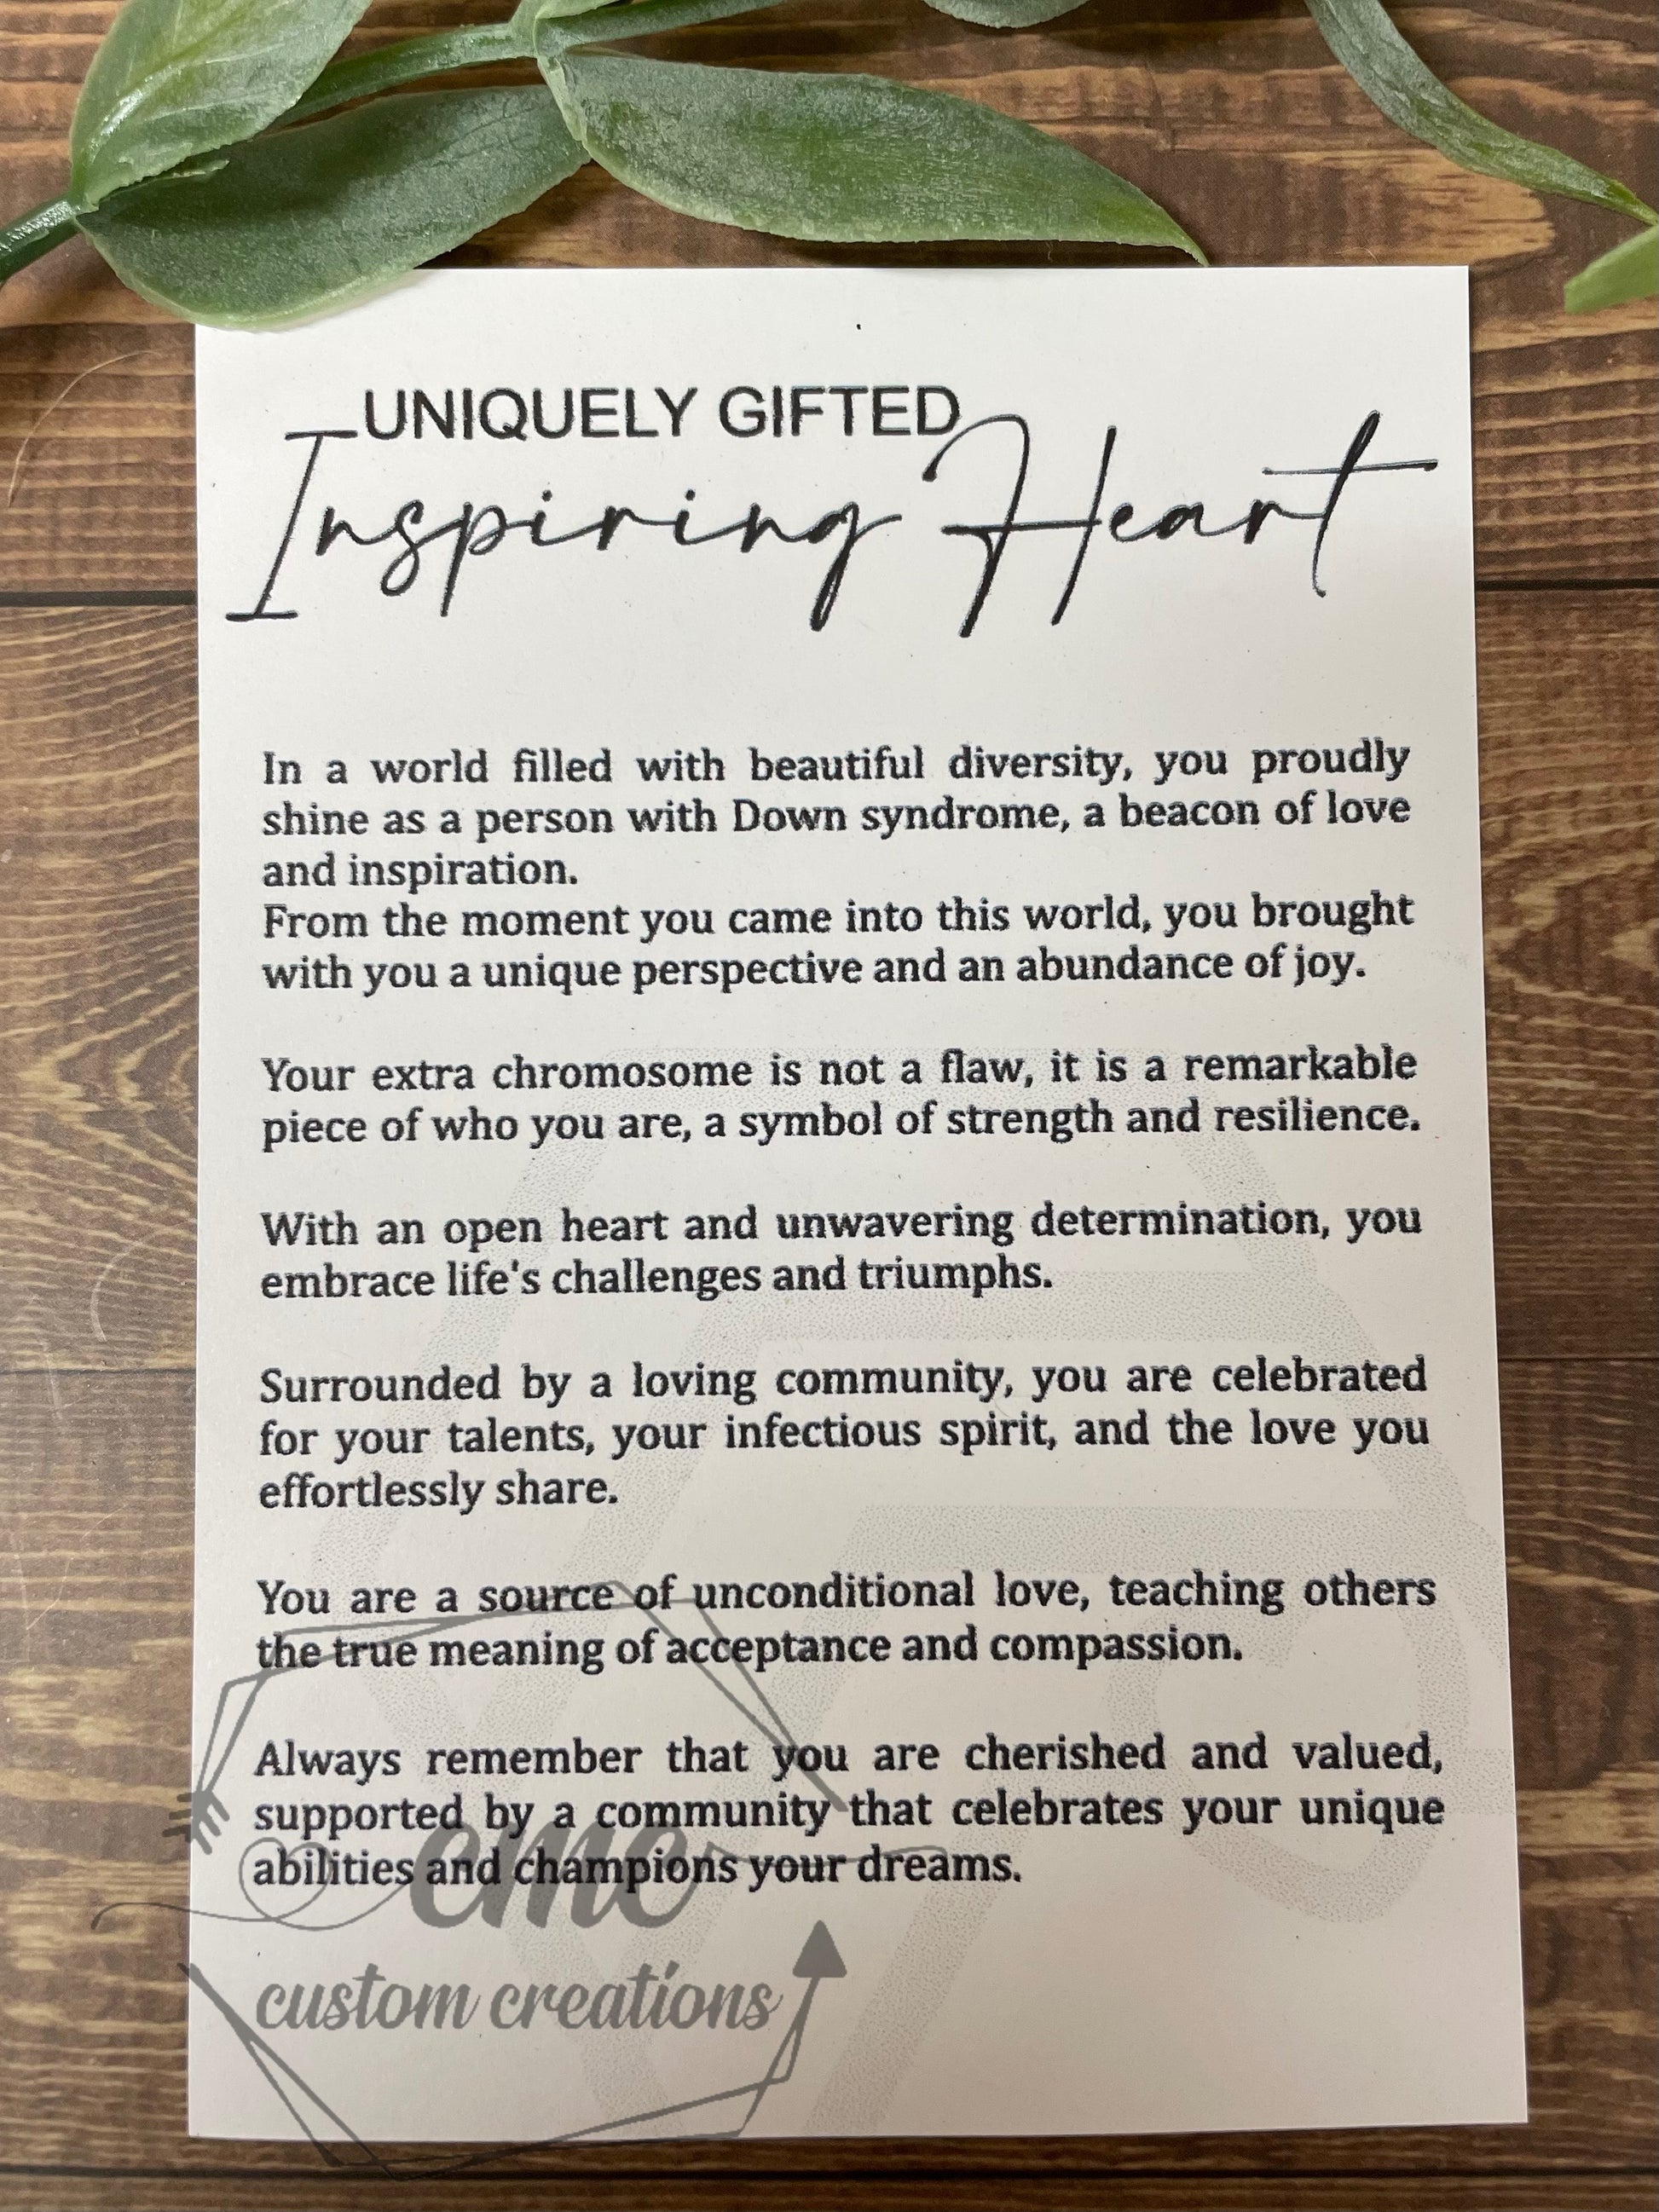 UNIQUELY GIFTED
Inspiring Heart
In a world filled with beautiful diversity, you proudly
shine as a person with Down syndrome, a beacon of love
and inspiration.
From the moment you came into this world, you brought
with you a unique perspective and an abundance of joy.
Your extra chromosome is not a flaw, it is a remarkable
piece of who you are, a symbol of strength and resilience.
With an open heart and unwavering determination, you
embrace life's challenges and triumphs.
Surrounded by a loving community, you are celebrated
for your talents, your infectious spirit, and the love you
effortlessly share.
You are a source of unconditional love, teaching others
the true meaning of acceptance and compassion.
Always remember that you are cherished and valued,
supported by a community that celebrates your unique
abilities and champions your dreams.
emc
custom creations